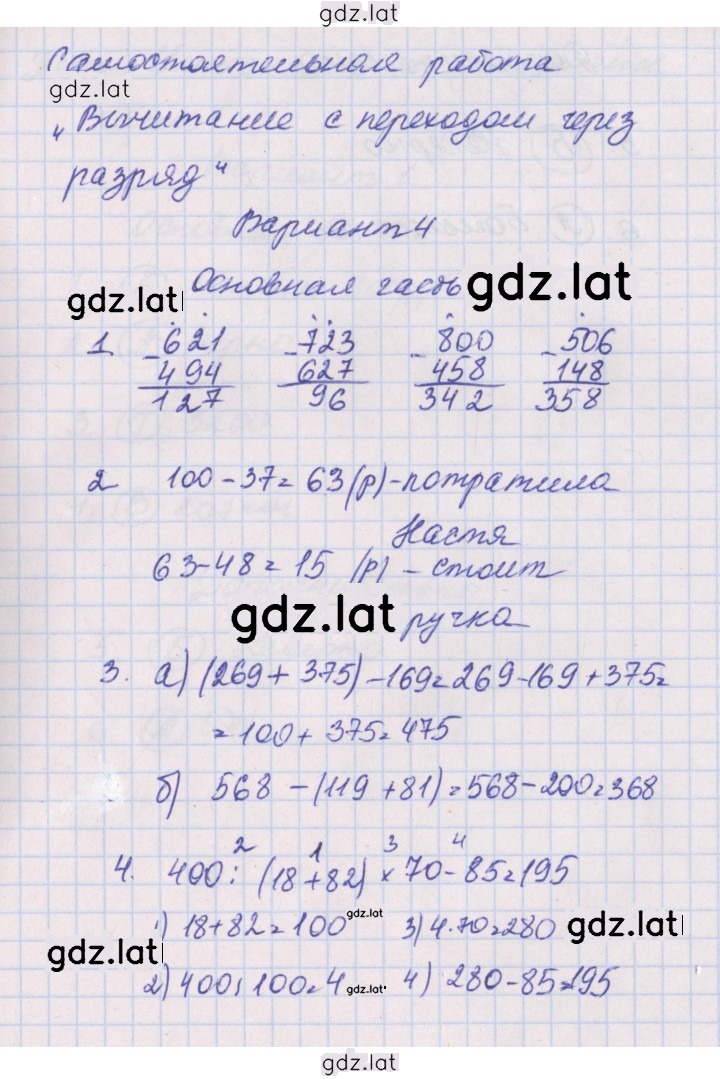 gdz.lat
Самостоятельная работа
gdz.lat
„Вычитание с переходом через
разряд“
Вариант 4
Основная часть
gdz.lat gdz.lat
1 -621 -723 -800 -506
494 627 458 148
127 96 342 358
2 100-37=63(р)-потратила
Настя
63-48=15 (р)-стоит
gdz.lat ручка
3. а) (269+375)-169=269-169+375=
=100+375=475
б) 568-(119+81)=568-200=368
2 1 3 4
4. 400:(18+82)×70-85=195
1) 18+82=100 gdz.lat 3) 4·70=280 gdz.lat
gdz.lat
2) 400:100=4 gdz.lat 4) 280-85=195
gdz.lat